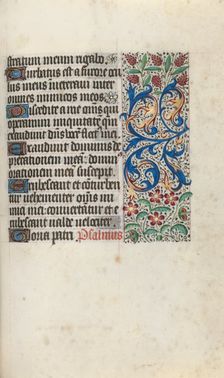 stratum meum rigabo.
Turbatus est a furore ocu
lus meus inveteravi inter
omnes inimicos meos.
Discedite a me omnes qui
operamini iniquitatem qm
exaudivit dns vocem fletus mei.
Exaudivit dominus de
precationem meam: domin
orationem meam suscepit.
Erubescant et conturben
tur vehementer omnes ini
mici mei: convertantur et
erubescant valde velociter.
Gloria patri Psalmus